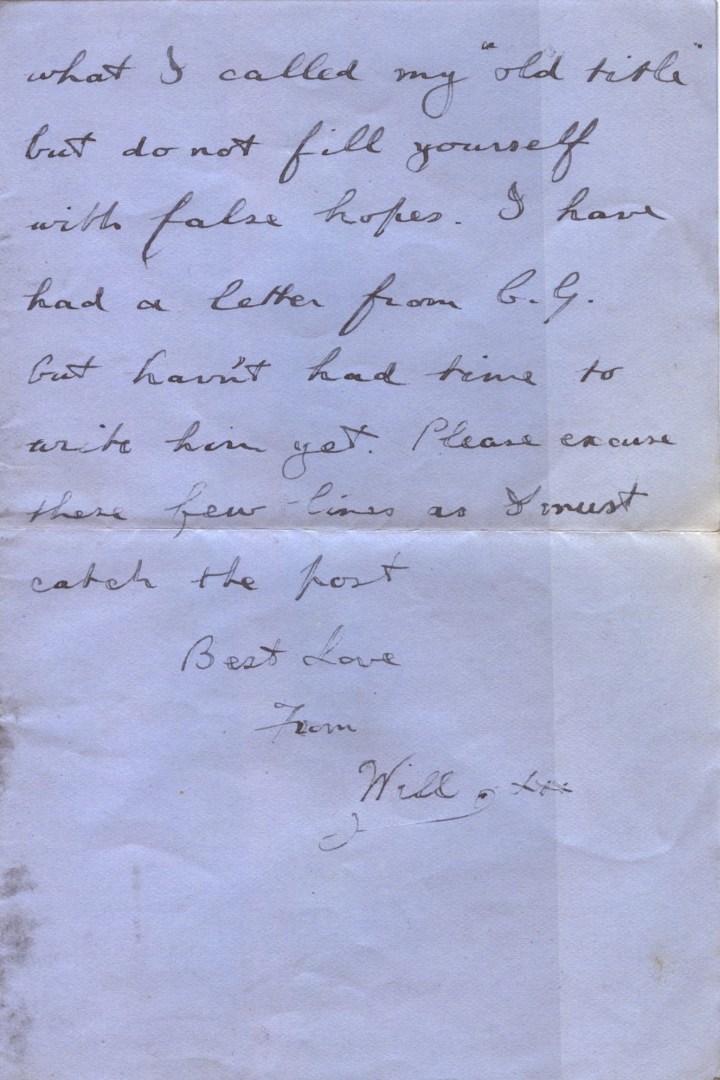 what I called my "old title"
but do not fill yourself
with false hopes. I have
had a letter from C.G.
but havn't had time to
write him yet. Please excuse
these few lines as I must
catch the post
Best Love
From
Will xxx